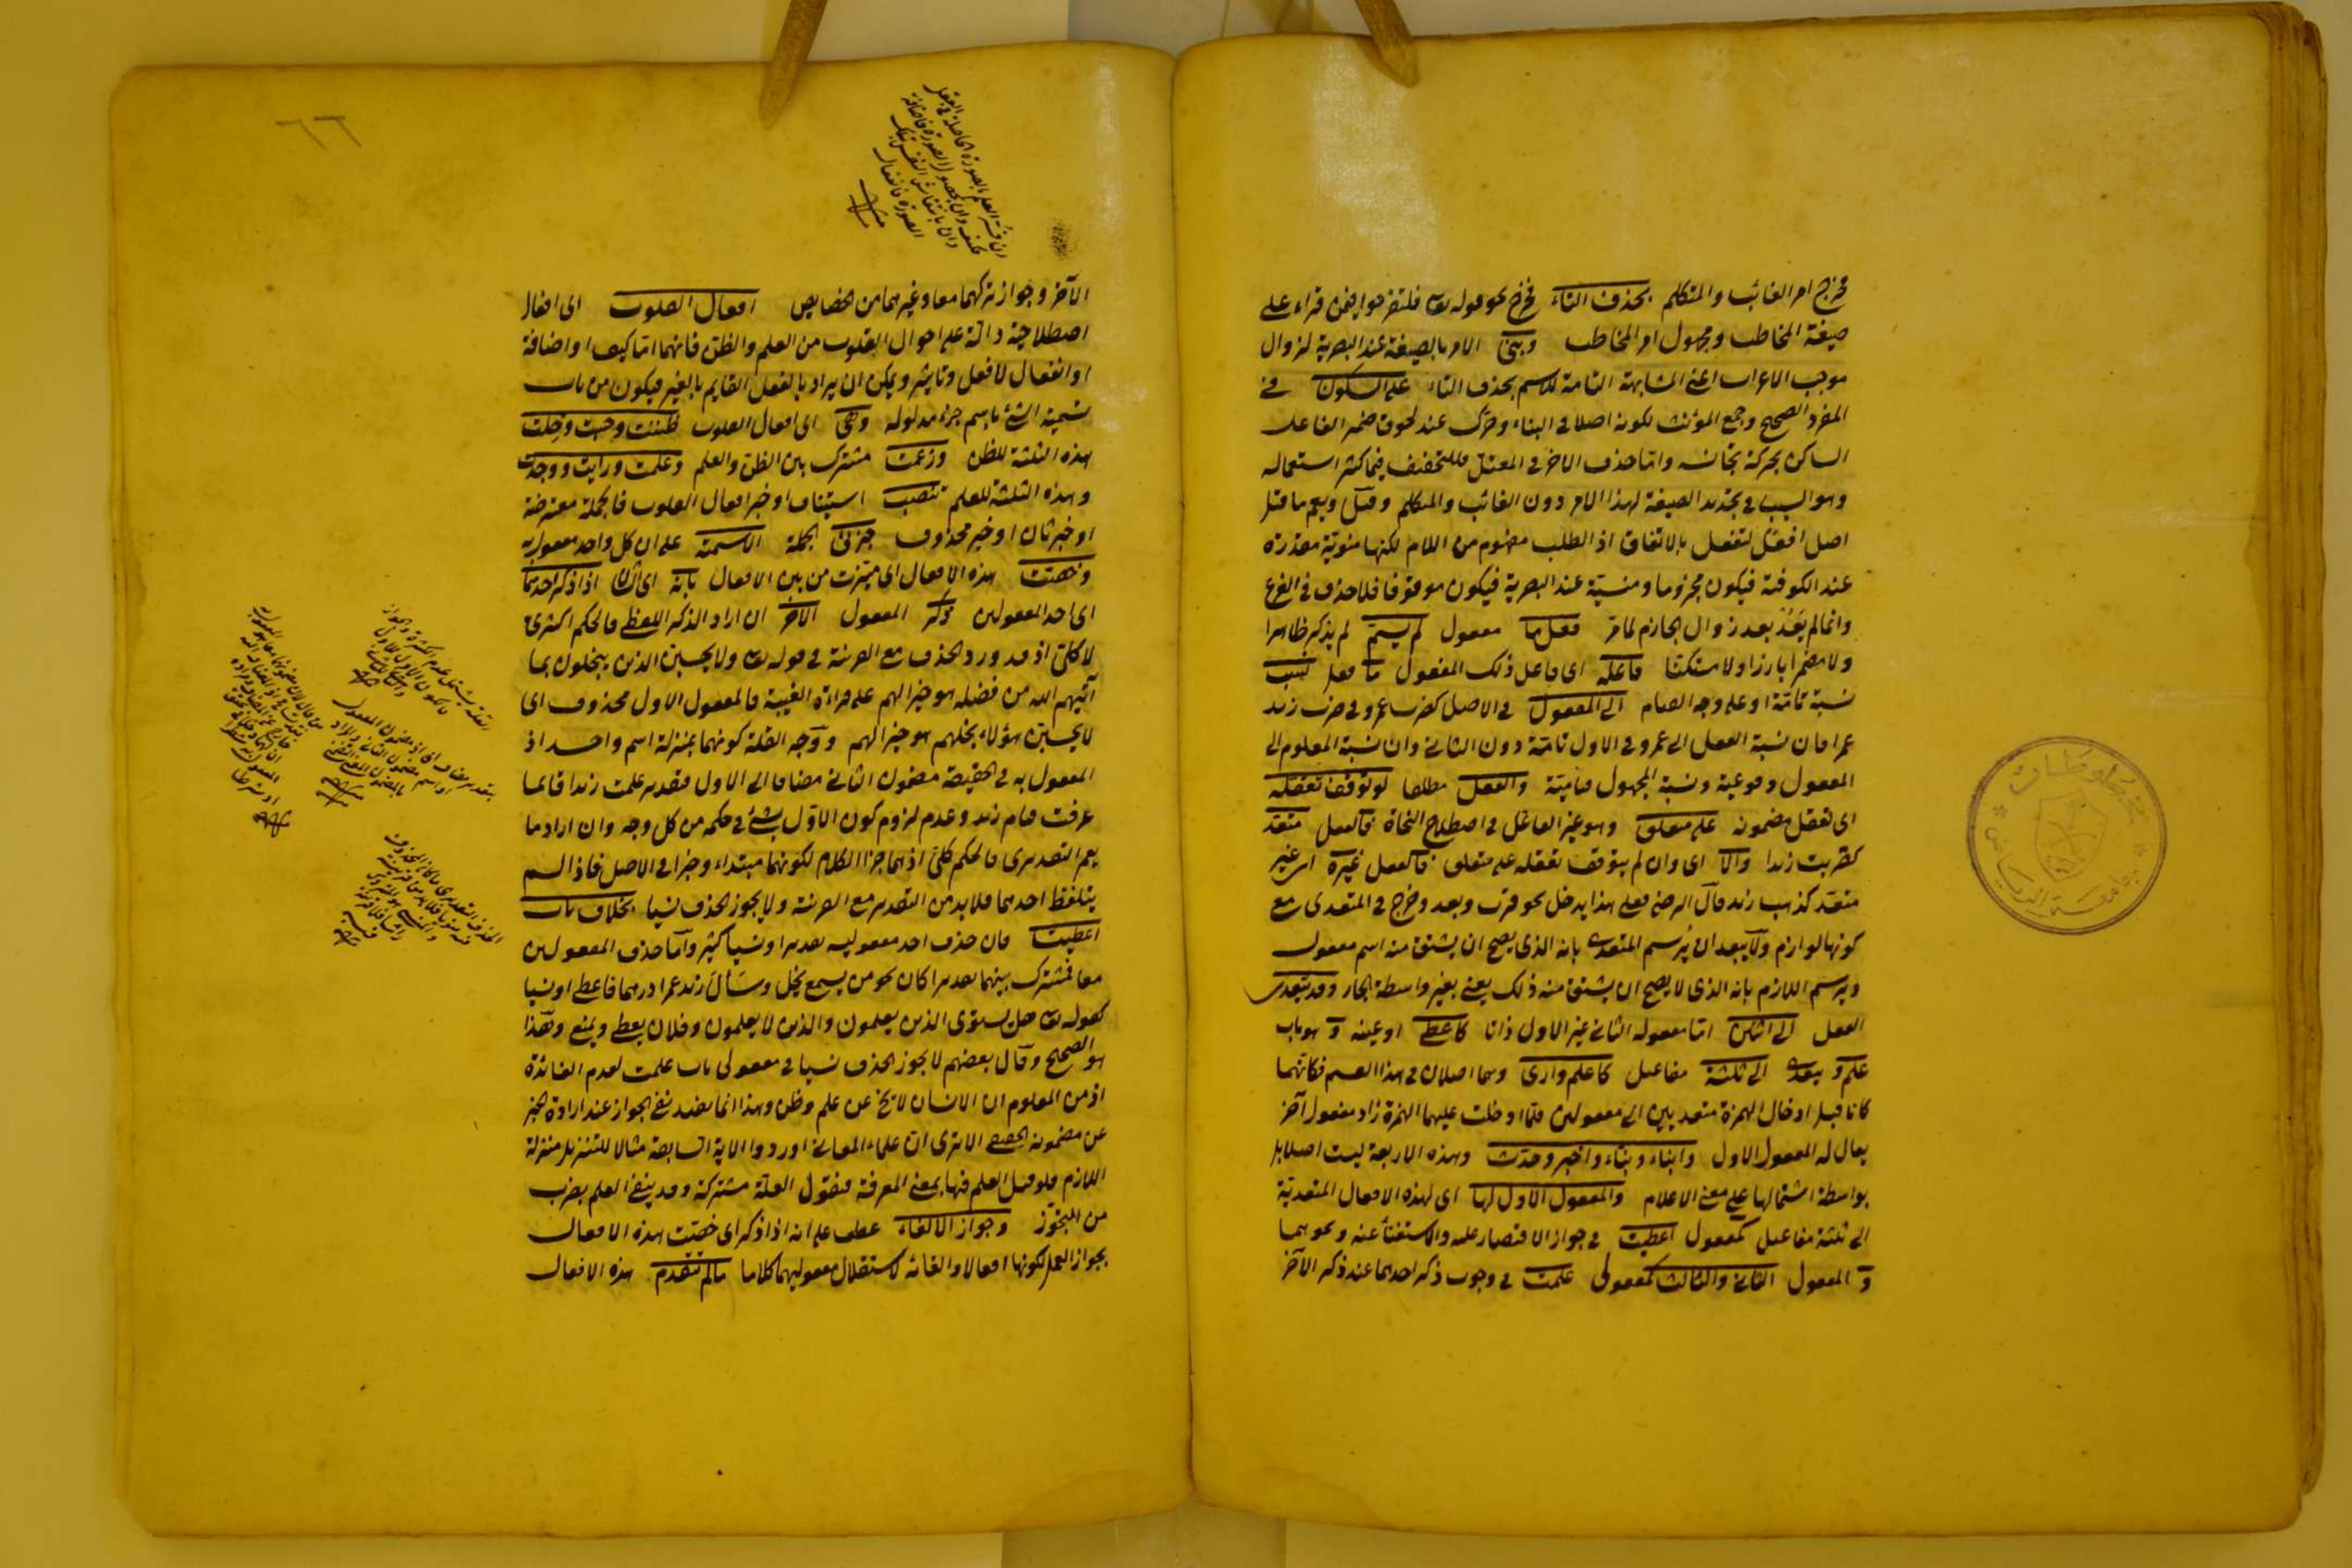 فخرج امر الغائب والمتكلم بحذف التاء فخرج نحو قوله تعا فلتفرحوا فيمن قراء على
صيغة المخاطب ومجهول امر المخاطب وبنى الامر بالصيغة عند البصرية لزوال
موجب الاعراب اعنى المشابهة التامة للاسم بحذف التاء على السكون فى
المفرد الصحيح وجمع المؤنث لكونه اصلا فى البناء وحرك عند لحوق ضمير الفاعل
الساكن بحركة تجانسه وانما حذف الاخر فى المعتل للتخفيف فيما كثر استعماله
وهو السبب فى تجديد الصيغة لهذا الامر دون الغائب والمتكلم وقيل ويعم ما قبل
اصل افعل لتفعل بالاتفاق اذ الطلب مفهوم من اللام لكنها منوية مقدرة
عند الكوفية فيكون مجزوما ومنسية عند البصرية فيكون موقوفا فلا حذف فى الفرع
وانما لم يعد بعد زوال الجازم لما مر فعل ما مفعول لم يسم لم يذكر ظاهرا
ولا مضمرا بارزا ولا مستكنا فاعله اى فاعل ذلك المفعول ما فعل نسب
نسبة تامة او على وجه القيام الى المفعول فى الاصل كضرب عمرو فى ضرب زيد
عمرا فان نسبة الفعل الى عمرو فى الاول تامة دون الثانى وان نسبة المعلوم الى
المفعول وقوعية ونسبة المجهول قيامية والفعل مطلقا لو توقف تعقله
اى تعقل مضمونه على متعلق وهو غير الفاعل فى اصطلاح النحاة فالفعل متعد
كضربت زيدا والا اى وان لم يتوقف تعقله على متعلق فالفعل غيره اى غير
متعد كذهب زيد قال الرضى فعلى هذا يدخل نحو قرب وبعد وخرج فى المتعدى مع
كونها لوازم ولا يبعد ان يرسم المتعدى بانه الذى يصح ان يشتق منه اسم مفعول
ويرسم اللازم بانه الذى لا يصح ان يشتق منه ذلك يعنى بغير واسطة الجار وقد يتعدى
الفعل الى اثنين اما مفعوله الثانى غير الاول ذاتا كاعطى او عينه و هو باب
علم و يتعدى الى ثلثة مفاعيل كاعلم وارى وهما اصلان فى هذا القسم فكانهما
كانا قبل ادخال الهمزة متعديين الى مفعولين فلما ادخلت عليهما الهمزة زاد مفعول آخر
يقال له المفعول الاول وانباء ونباء واخبر وحدث وهذه الاربعة ليست اصلا بل
بواسطة اشتمالها على معنى الاعلام والمفعول الاول لها اى لهذه الافعال المتعدية
الى ثلثة مفاعيل كمفعول اعطيت فى جواز الاقتصار عليه والاستغناء عنه ونحوهما
و المفعول الثانى والثالث كمفعولى علمت فى وجوب ذكر احدهما عند ذكر الآخر
مخطوطات
جامعة الرياض
٦٦
ان فسر العلم بالصورة الحاصلة فى العقل
فكيف وان بحصول الصورة فاضافة
وان بانتقاش النفس بتلك
الصورة فانفعال
الآخر وجواز تركهما معا وغيرهما من الخصايص افعال القلوب اى افعال
اصطلاحية دالة على احوال القلوب من العلم والظن فانهما اما كيف او اضافة
او انفعال لا فعل وتاثير ويمكن ان يراد بالفعل القايم بالغير فيكون من باب
تسمية الشئ باسم جزء مدلوله وهى اى افعال القلوب ظننت وحسبت وخلت
هذه الثلثة للظن وزعمت مشترك بين الظن والعلم وعلمت ورايت ووجدت
وهذه الثلثة للعلم تنصب استيناف او خبر افعال القلوب فالجملة معترضة
او خبر ثان او خبر محذوف جزئى الجملة الاسمية على ان كل واحد مفعول به
وخصت هذه الافعال اى ميزت من بين الافعال بانه اى الشان اذا ذكر احدهما
اى احد المفعولين ذكر المفعول الآخر ان اراد الذكر اللفظى فالحكم اكثرى
لا كلى اذ قد ورد الحذف مع القرينة فى قوله تعا ولا يحسبن الذين يبخلون بما
آتيهم الله من فضله هو خيرا لهم على قراءة الغيبة فالمفعول الاول محذوف اى
لا يحسبن هؤلاء بخلهم هو خيرا لهم ووجه القلة كونهما بمنزلة اسم واحد اذ
المفعول به فى الحقيقة مضمون الثانى مضافا الى الاول فتقدير علمت زيدا قائما
عرفت قيام زيد وعدم لزوم كون الاول بشئ فى حكمه من كل وجه وان اراد ما
يعم التقديرى فالحكم كلى اذ هما جزا الكلام لكونهما مبتداء وخبرا فى الاصل فاذا لم
يتلفظ احدهما فلا بد من التقدير مع القرينة ولا يجوز الحذف نسيا بخلاف باب
اعطيت فان حذف احد مفعوليه تقديرا ونسيا كثير واما حذف المفعولين
معا فمشترك بينهما تقديرا كان نحو من يسمع يخل وسأل زيد عمرا درهما فاعطى او نسيا
كقوله تعا هل يستوى الذين يعلمون والذين لا يعلمون وفلان يعطى ويمنع وهذا
هو الصحيح وقال بعضهم لا يجوز الحذف نسيا فى مفعولى باب علمت لعدم الفائدة
اذ من المعلوم ان الانسان لا يخ عن علم وظن وهذا انما يفيد نفى الجواز عند ارادة الخبر
عن مضمونه الحقيقى الا ترى ان علماء المعانى اوردوا الاية السابقة مثالا للتنزيل منزلة
اللازم فلو قيل العلم فيها بمعنى المعرفة فنقول العلة مشتركة وقد ينفى العلم بضرب
من التجوز وجواز الالغاء عطف على انه اذا ذكر اى خصت هذه الافعال
بجواز العمل لكونها افعالا والغائه لاستقلال مفعوليهما كلاما ما لم تتقدم هذه الافعال